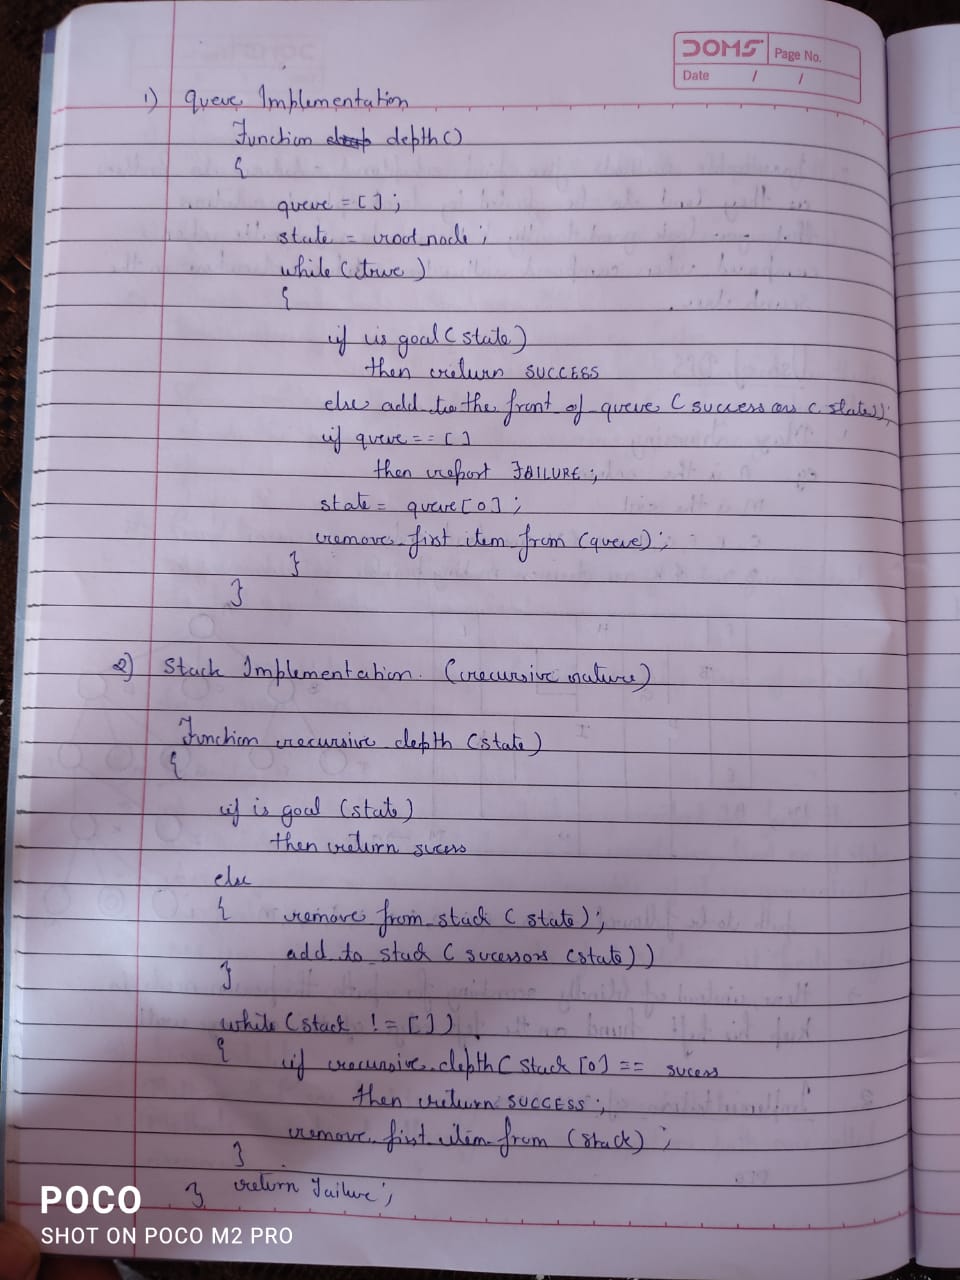 DOMS Page No.
Date / /
1) queue Implementation
Function depth()
{
queue = [];
state = root node;
while (true)
{
if is goal (state)
then return SUCCESS
else add to the front of queue (successors (state));
if queue == []
then report FAILURE;
state = queue[0];
remove first item from (queue);
}
}
2) Stack Implementation. (recursive nature)
Function recursive depth (state)
{
if is goal (state)
then return sucess
else
{ remove from stack (state);
add to stack (sucessors (state))
}
while (stack != [])
{ if recursive depth (stack [0] == sucess
then return SUCCESS;
remove first item from (stack);
}
} return Failure;
POCO
SHOT ON POCO M2 PRO